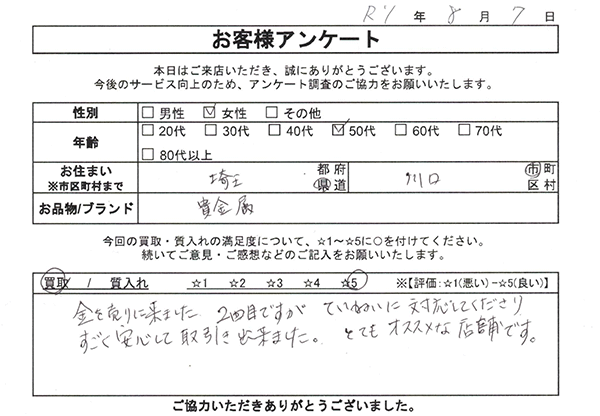 R7年 8月 7日
お客様アンケート
本日はご来店いただき、誠にありがとうございます。
今後のサービス向上のため、アンケート調査のご協力をお願いいたします。
性別 □男性 ☑女性 □その他
年齢 □20代 □30代 □40代 ☑50代 □60代 □70代
□80代以上
お住まい ※市区町村まで 埼玉 都府県道 川口 市町区村
お品物/ブランド 貴金属
今回の買取・質入れの満足度について、☆1～☆5に○を付けてください。
続いてご意見・ご感想などのご記入をお願いいたします。
買取 / 質入れ ☆1 ☆2 ☆3 ☆4 ☆5 ※【評価:☆1(悪い)−☆5(良い)】
金を売りに来ました 2回目ですが ていねいに対応してくださり
すごく安心して取引き出来ました。とてもオススメな店舗です。
ご協力いただきありがとうございました。